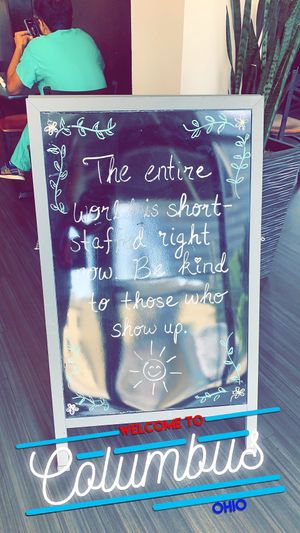 The entire
world is short-
staffed right
now. Be kind
to those who
show up.
WELCOME TO
Columbus
OHIO